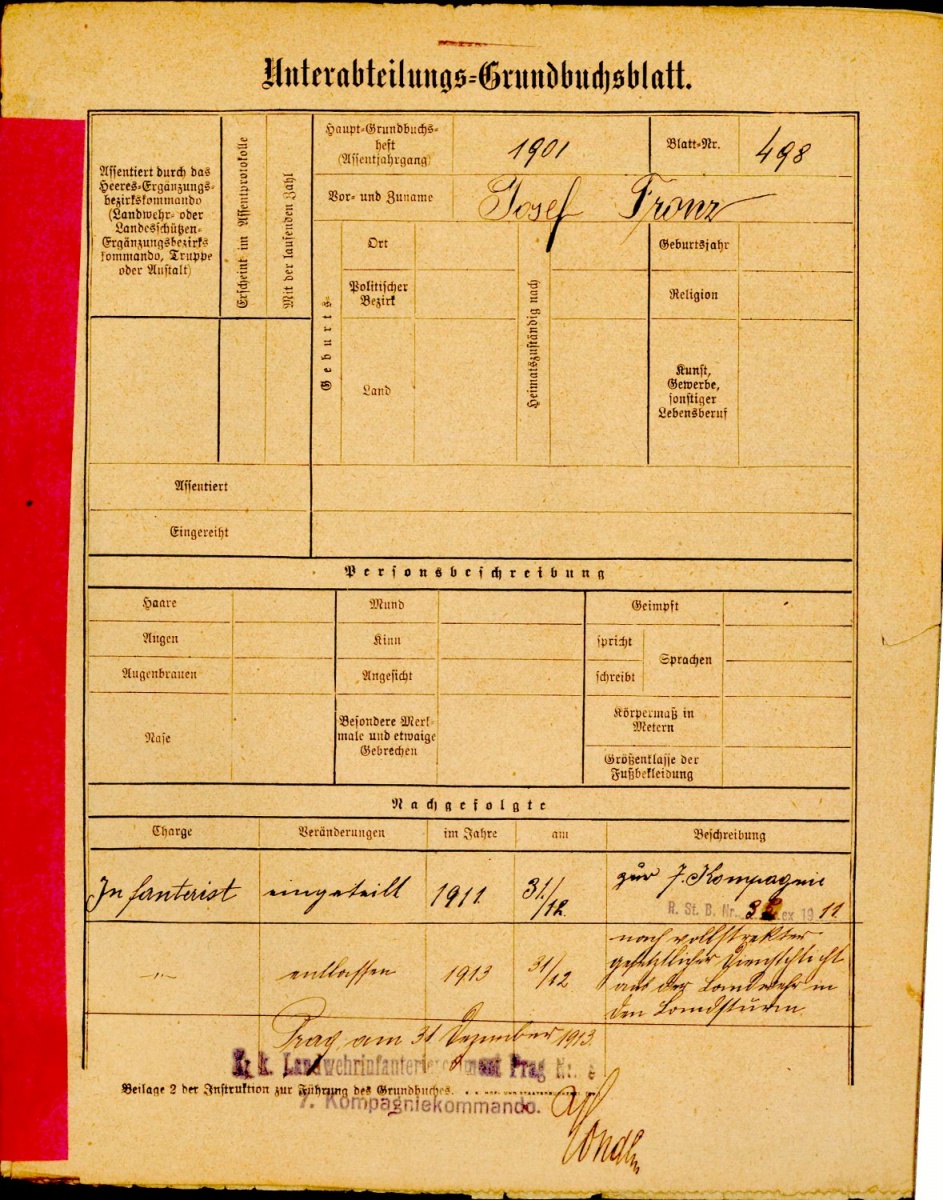 Unterabteilungs-Grundbuchsblatt.
Assentiert durch das
Heeres-Ergänzungs-
bezirkskommando
(Landwehr- oder
Landesschützen-
Ergänzungsbezirks
kommando, Truppe
oder Anstalt)
Erscheint im Assentprotokolle
Mit der laufenden Zahl
Haupt-Grundbuchs-
heft
(Assentjahrgang)
1901
Blatt-Nr.
498
Vor- und Zuname
Josef Franz
Geburts-
Ort
Politischer
Bezirk
Land
Heimatszuständig nach
Geburtsjahr
Religion
Kunst,
Gewerbe,
sonstiger
Lebensberuf
Assentiert
Eingereiht
Personsbeschreibung
Haare
Augen
Augenbrauen
Nase
Mund
Kinn
Angesicht
Besondere Merk-
male und etwaige
Gebrechen
Geimpft
spricht
schreibt
Sprachen
Körpermaß in
Metern
Größenklasse der
Fußbekleidung
Nachgefolgte
Charge Veränderungen im Jahre am Beschreibung
Infanterist eingeteilt 1911 31/12 zur 7. Kompagnie
R. St. B. Nr. ex 1911
-"- entlassen 1913 31/12 nach vollstreckter
gesetzlicher Dienstpflicht
aus der Landwehr in
den Landsturm.
Prag, am 31 Dezember 1913.
K. k. Landwehrinfanterieregiment Prag Nr. 8
Beilage 2 der Instruktion zur Führung des Grundbuches.
7. Kompagniekommando.